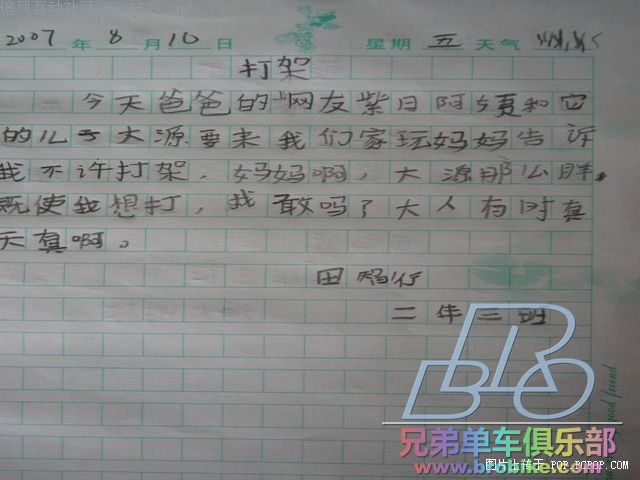 2007 年 8 月 10 日 星期 五 天气
打架
今天爸爸的"网友紫日阿 和它
的儿子大源要来我们家玩妈妈告诉
我不许打架，妈妈啊，大源那么胖，
既使我想打，我敢吗？大人有时真
天真啊。
田
二年三班
BRO
兄弟单车俱乐部
www.brobike.com
图片上传于 POP.PCPOP.COM
good friend
追风互动社区